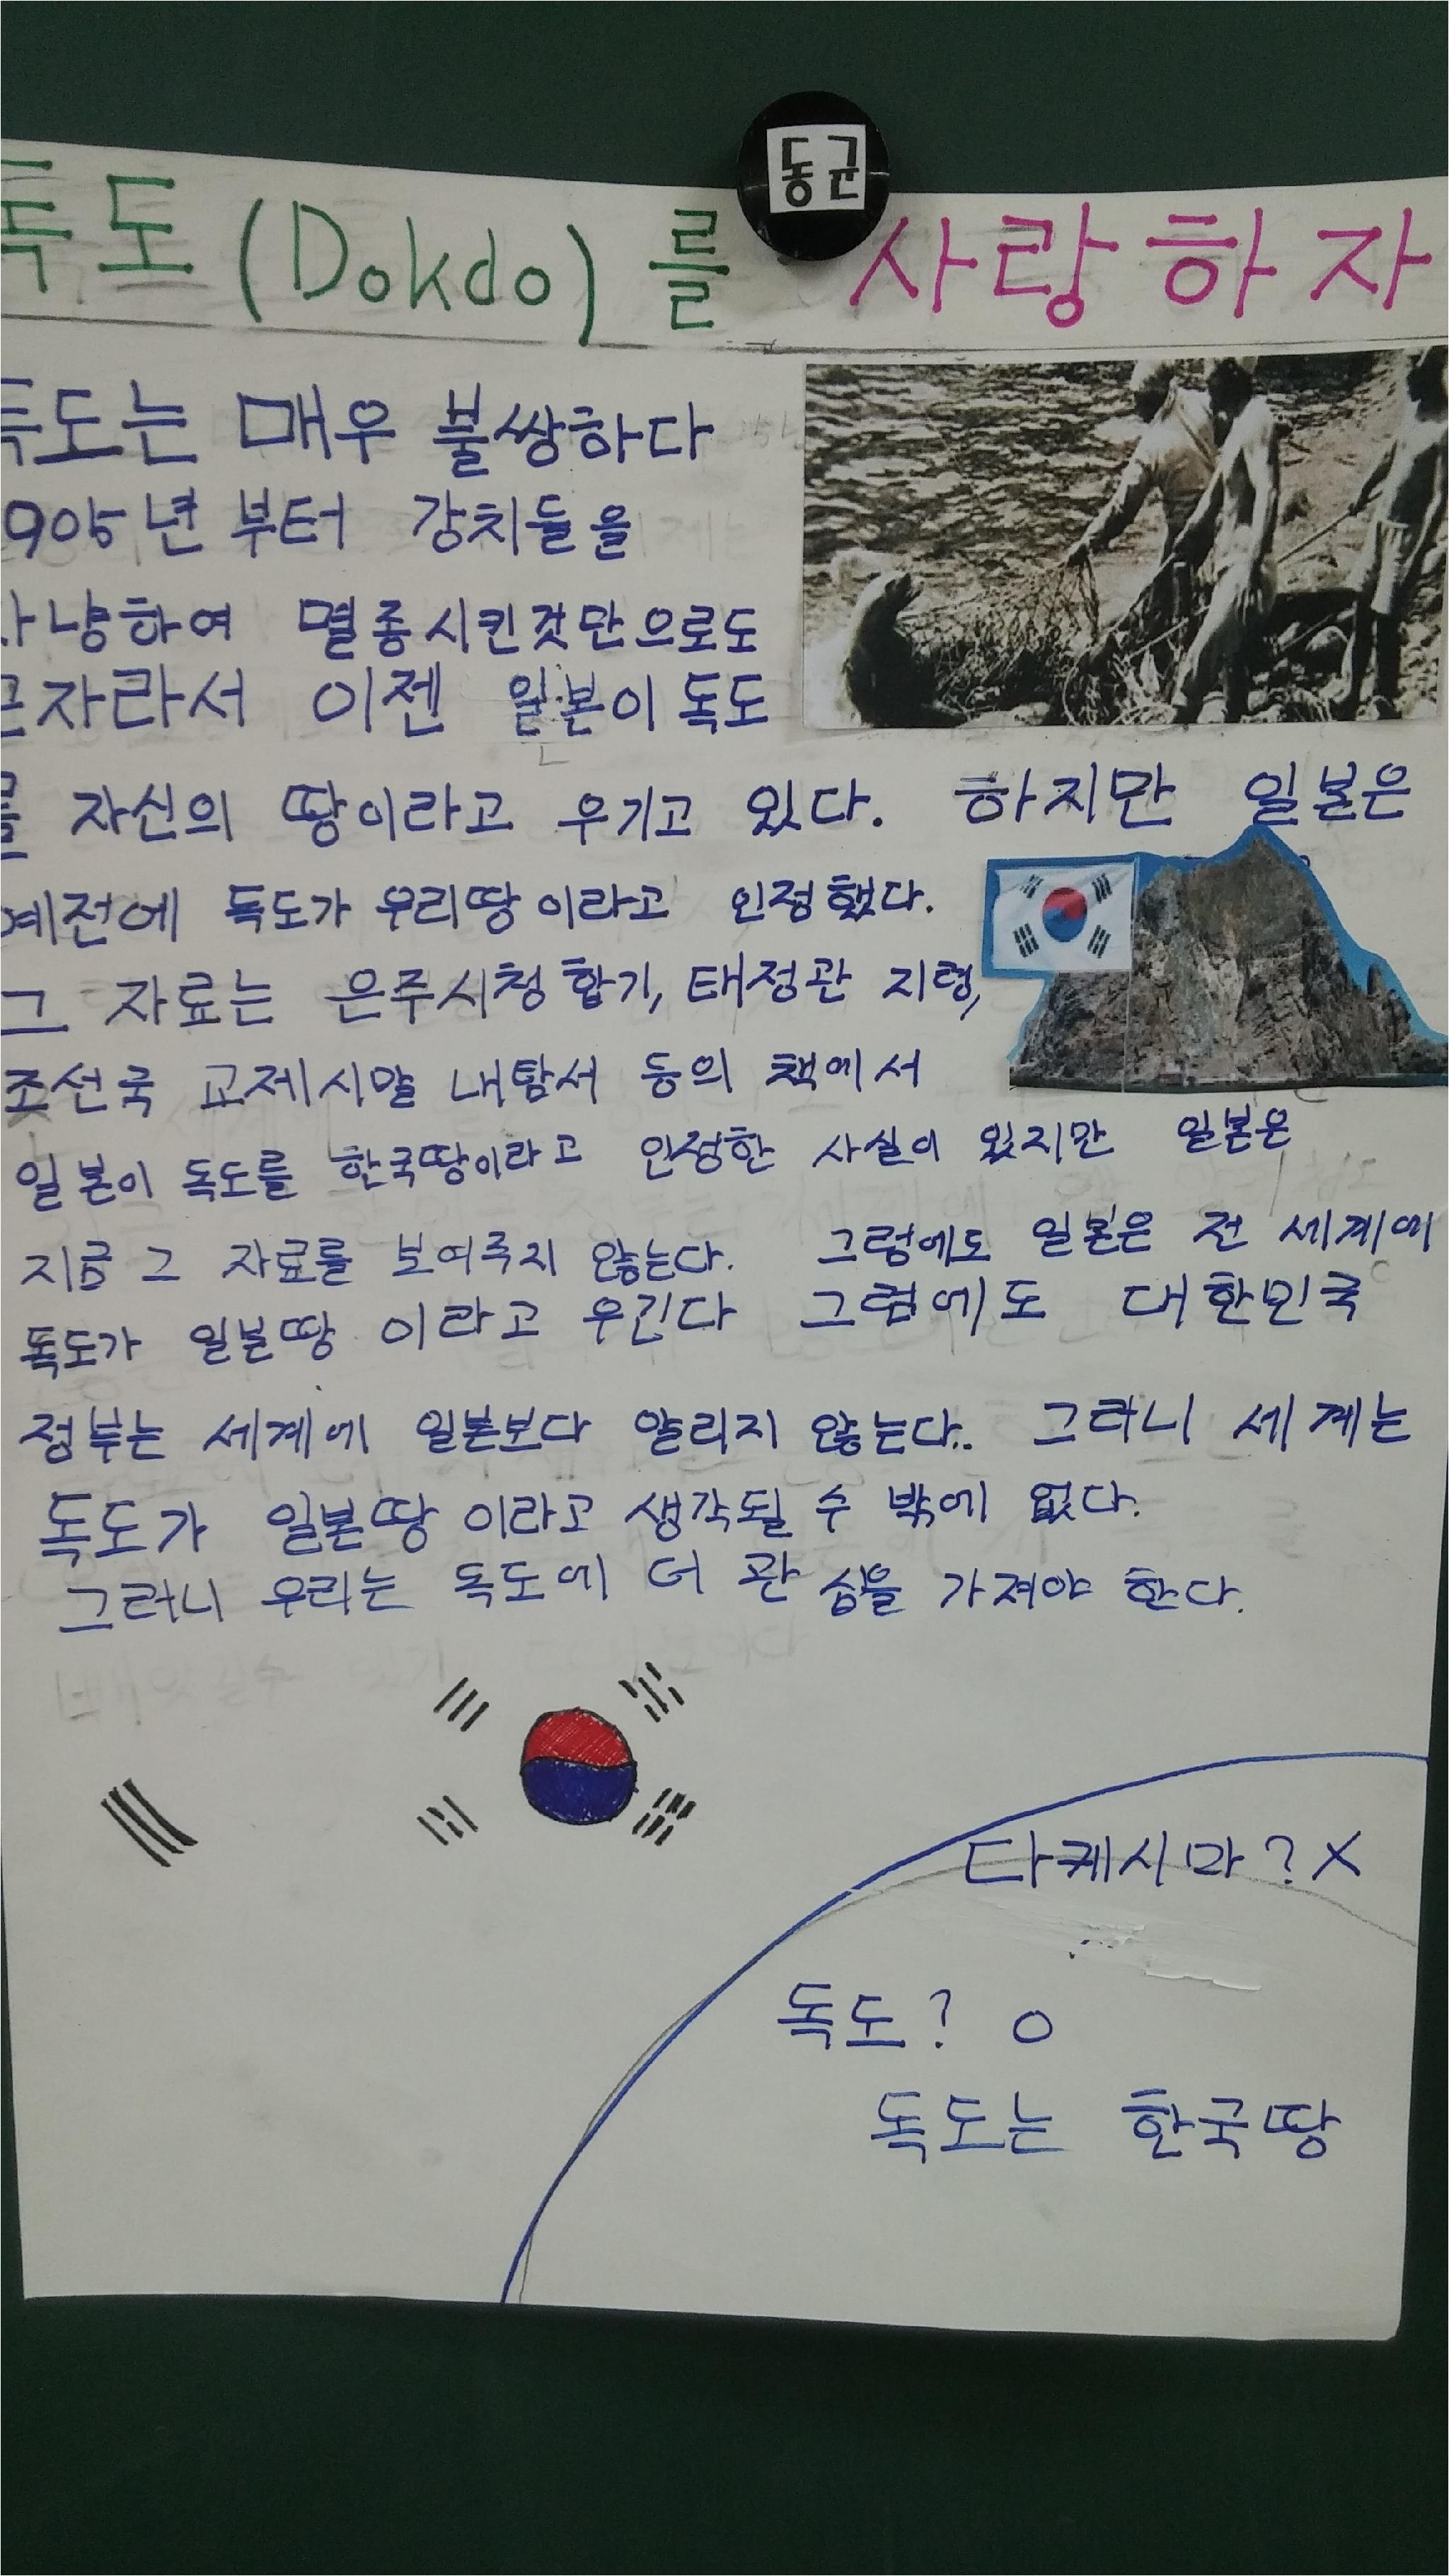 동균
독도 (Dokdo)를 사랑하자
독도는 매우 불쌍하다
905년 부터 강치들을
사냥하여 멸종시킨것만으로도
모자라서 이젠 일본이 독도
를 자신의 땅이라고 우기고 있다. 하지만 일본은
예전에 독도가 우리땅이라고 인정했다.
그 자료는 은주시청합기, 태정관 지령,
조선국 교제시말 내탐서 등의 책에서
일본이 독도를 한국땅이라고 인정한 사실이 있지만 일본은
지금 그 자료를 보여주지 않는다. 그럼에도 일본은 전 세계에
독도가 일본땅 이라고 우긴다 그럼에도 대한민국
정부는 세계에 일본보다 알리지 않는다. 그러니 세계는
독도가 일본땅 이라고 생각될 수 밖에 없다.
그러니 우리는 독도에 더 관심을 가져야 한다.
타케시마? X
독도? O
독도는 한국땅